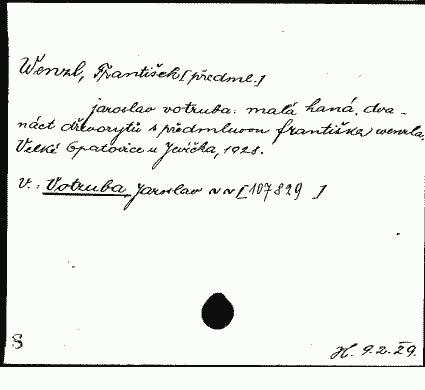 Wenzl, František [předml.]
jaroslav votruba: malá haná. dva-
náct dřevorytů s předmluvou františka wenzla.
Velké Opatovice u Jevíčka, 1928.
V.: Votruba, Jaroslav [107829 ]
S
H. 9.2.29.